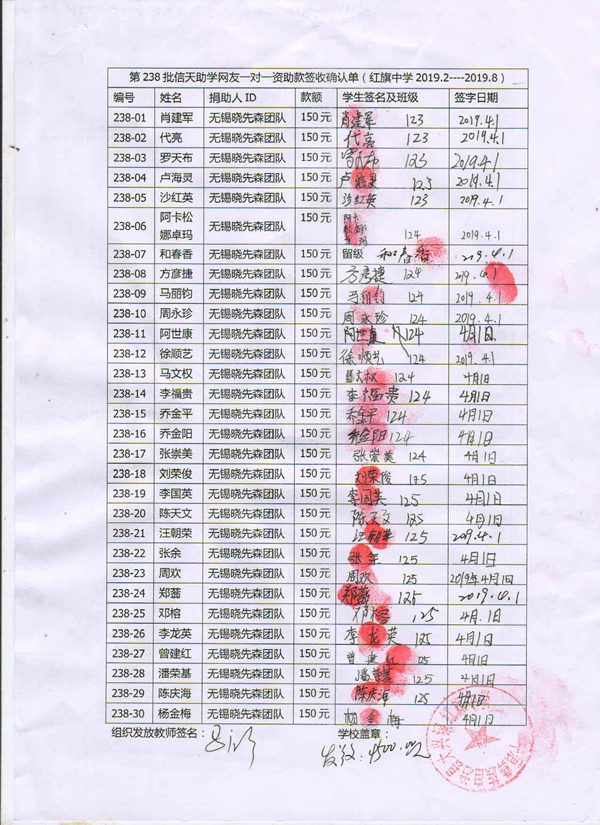 第 238 批信天助学网友一对一资助款签收确认单（红旗中学 2019.2----2019.8）
编号 姓名 捐助人 ID 款额 学生签名及班级 签字日期
238-01 肖建军 无锡晓先森团队 150 元 肖建军 123 2019.4.1
238-02 代亮 无锡晓先森团队 150 元 代亮 123 2019.4.1
238-03 罗天布 无锡晓先森团队 150 元 123 2019.4.1
238-04 卢海灵 无锡晓先森团队 150 元 卢海灵 123 2019.4.1
238-05 沙红英 无锡晓先森团队 150 元 沙红英 123 2019.4.1
238-06 阿卡松娜卓玛 无锡晓先森团队 150 元 124 2019.4.1
238-07 和春香 无锡晓先森团队 150 元 留级 和春香 2019.4.1
238-08 方彦捷 无锡晓先森团队 150 元 方彦捷 124 2019.4.1
238-09 马丽钧 无锡晓先森团队 150 元 124 2019.4.1
238-10 周永珍 无锡晓先森团队 150 元 周永珍 124 2019.4.1
238-11 阿世康 无锡晓先森团队 150 元 阿世康 124 4月1日
238-12 徐顺艺 无锡晓先森团队 150 元 徐顺艺 124 2019.4.1
238-13 马文权 无锡晓先森团队 150 元 马文权 124 4月1日
238-14 李福贵 无锡晓先森团队 150 元 李福贵 124 4月1日
238-15 乔金平 无锡晓先森团队 150 元 乔金平 124 4月1日
238-16 乔金阳 无锡晓先森团队 150 元 乔金阳 124 4月1日
238-17 张崇美 无锡晓先森团队 150 元 张崇美 124 4月1日
238-18 刘荣俊 无锡晓先森团队 150 元 刘荣俊 125 4月1日
238-19 李国英 无锡晓先森团队 150 元 李国英 125 4月1日
238-20 陈天文 无锡晓先森团队 150 元 陈天文 125 4月1日
238-21 汪朝荣 无锡晓先森团队 150 元 汪朝荣 125 2019.4.1
238-22 张余 无锡晓先森团队 150 元 张余 125 4月1日
238-23 周欢 无锡晓先森团队 150 元 周欢 125 2019年4月1日
238-24 郑荟 无锡晓先森团队 150 元 郑荟 125 2019.4.1
238-25 邓榕 无锡晓先森团队 150 元 邓榕 125 4月.1日
238-26 李龙英 无锡晓先森团队 150 元 李龙英 125 4月1日
238-27 曾建红 无锡晓先森团队 150 元 曾建红 125 4月1日
238-28 潘荣基 无锡晓先森团队 150 元 潘荣基 125 4月1日
238-29 陈庆海 无锡晓先森团队 150 元 陈庆海 125 4月1日
238-30 杨金梅 无锡晓先森团队 150 元 杨金梅 4月1日
组织发放教师签名： 学校盖章：
发放：4500.元